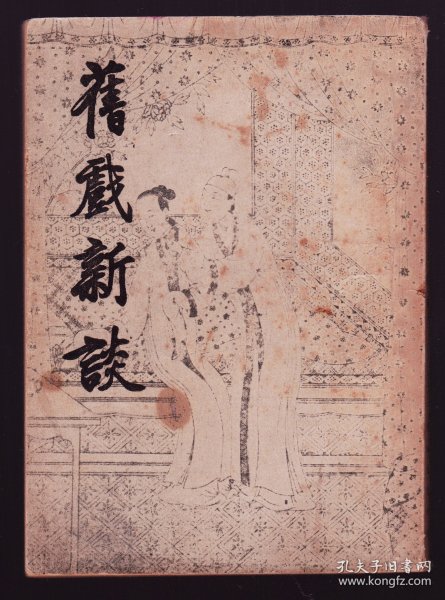 舊戲新談
孔夫子旧书网
www.kongfz.com